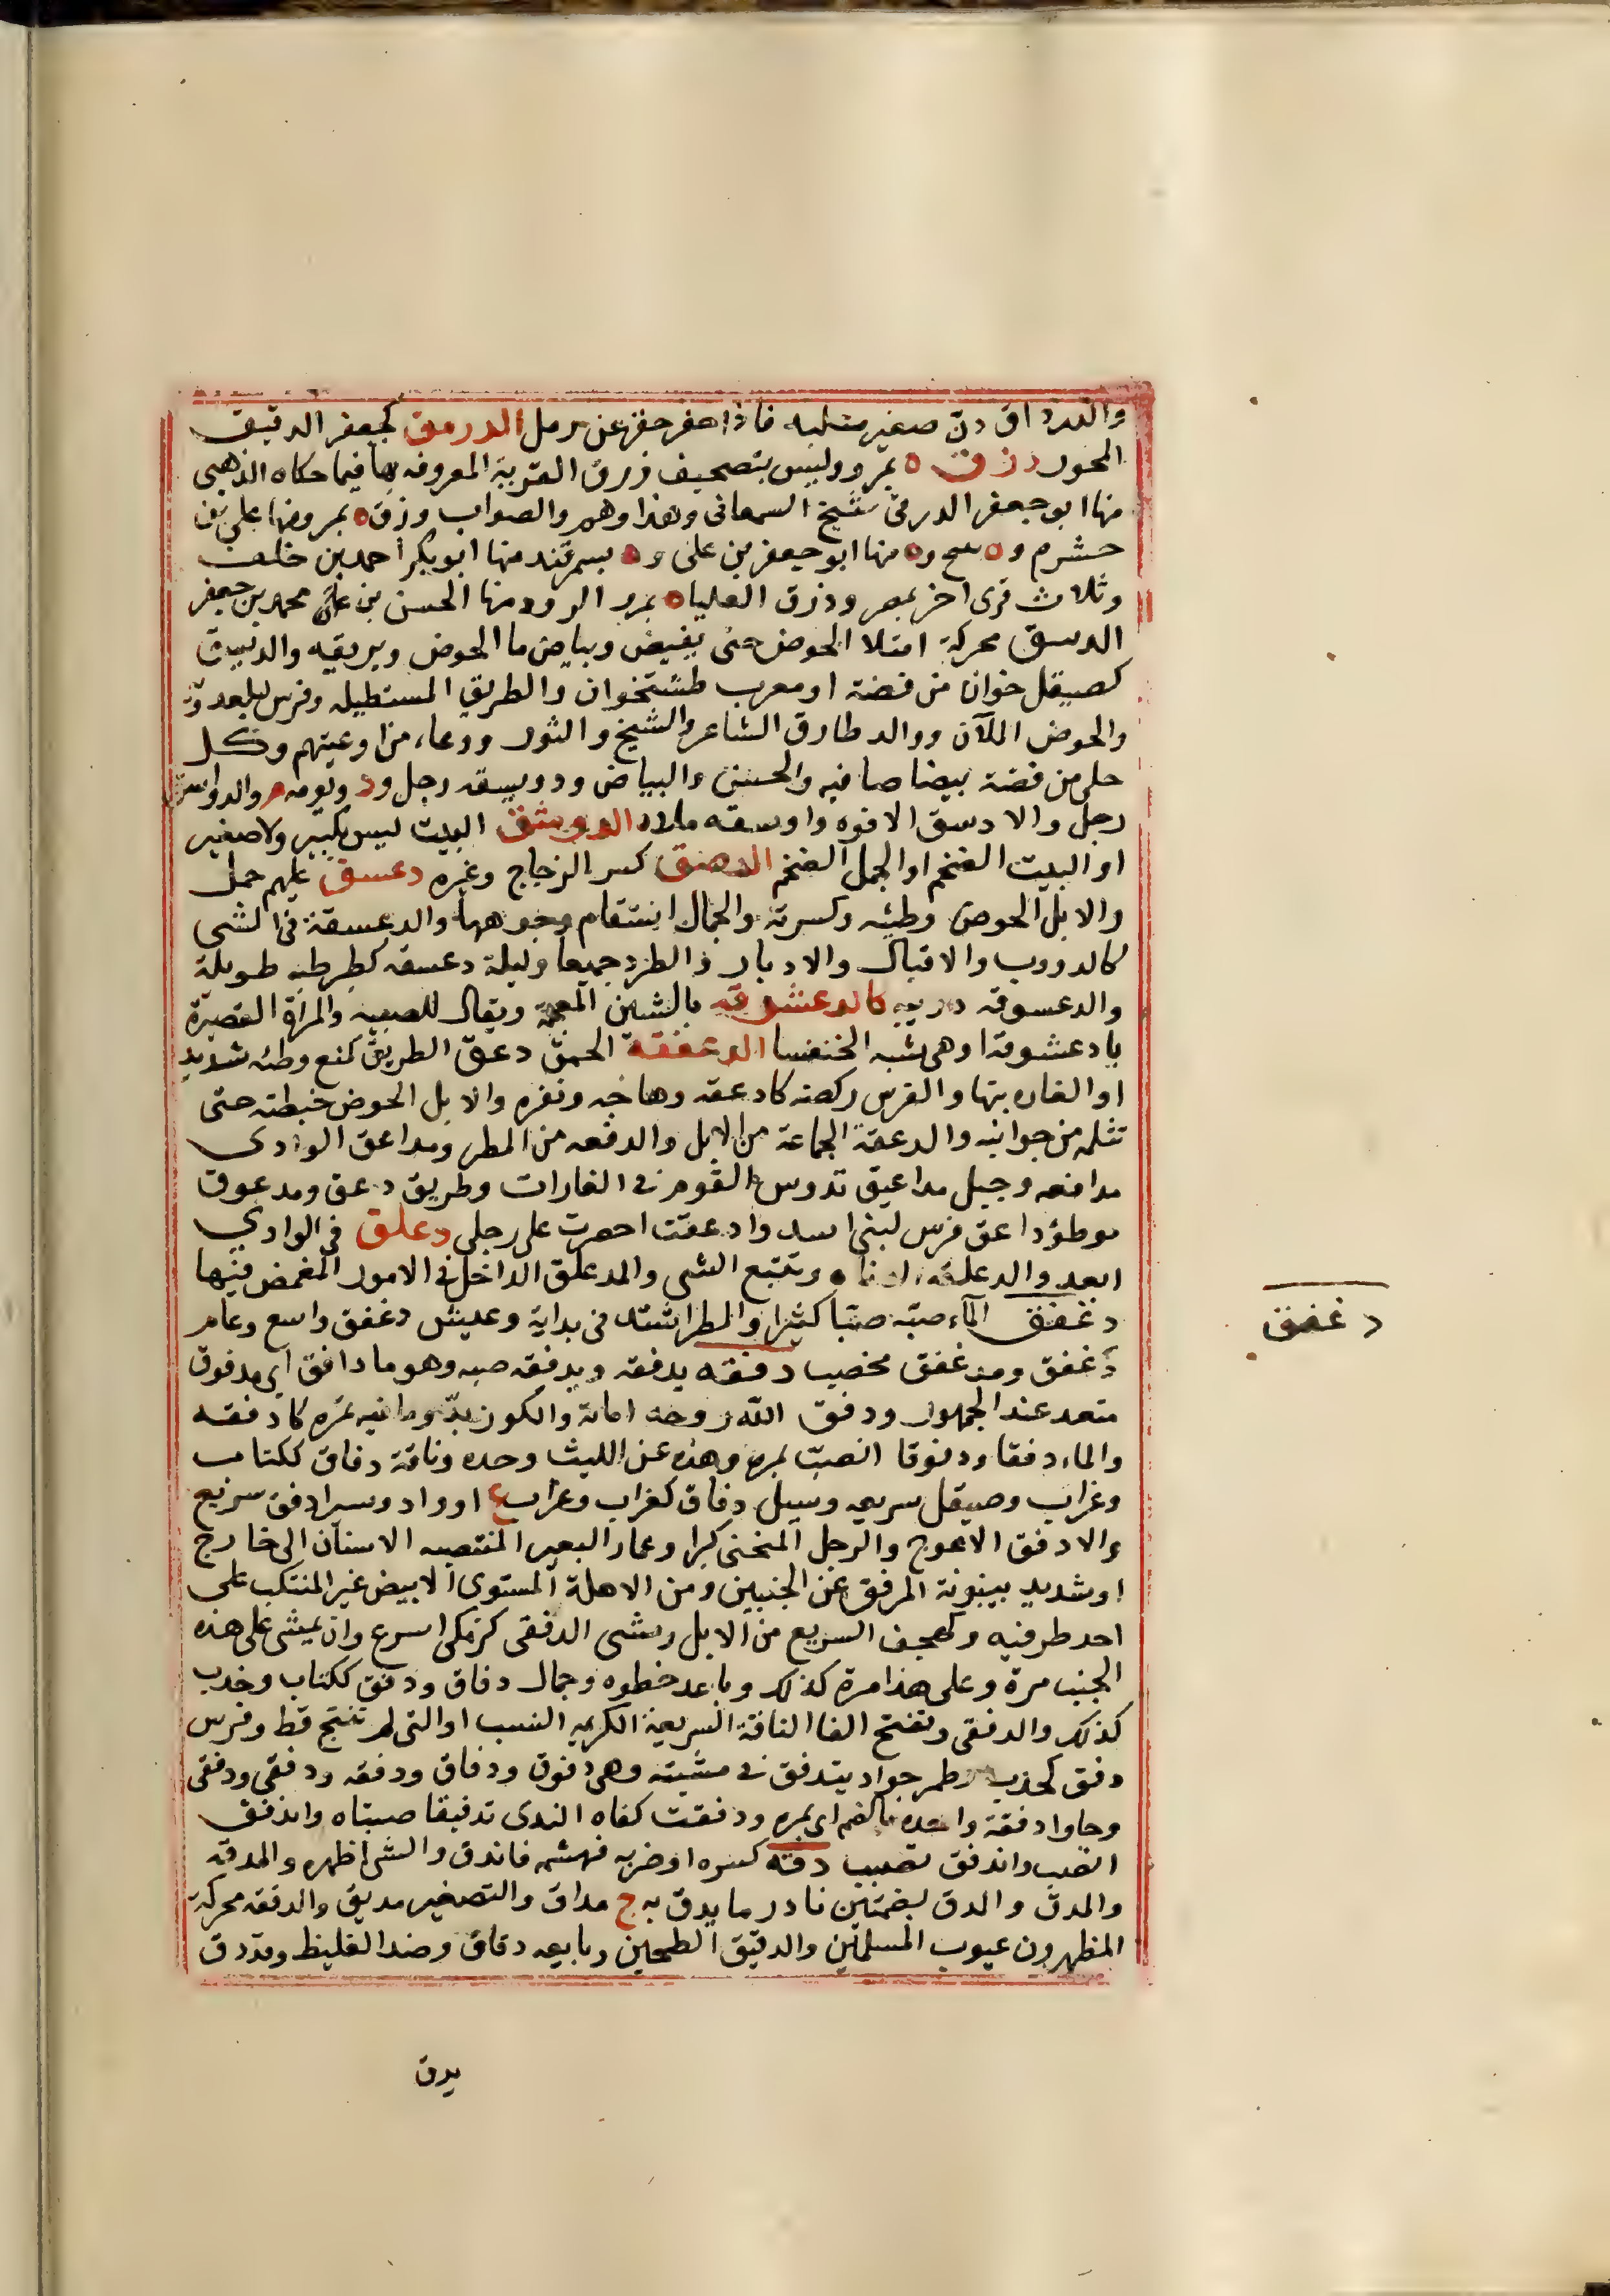 والدرداق دك صغير متلبد فاذا حفر حفر عن رمل الدرمق كجعفر الدقيق
المحور دزق ه بمرو وليس بتصحيف زرق القرية المعروفه بها فيما حكاه الذهبى
منها ابو جعفر الدزقى شيخ السمعانى وهذا وهم والصواب وزق ه بمرو منها على بن
خشرم و ه منها ابو جعفر بن على و ه بسمرقند منها ابو بكر احمد بن خلف
وثلاث قرى اخر بمصر ودزق العليا ه بمرو الرود منها الحسن بن محمد بن جعفر
الدسق محركة امتلا الحوض حتى يفيض وبياض ما الحوض وبريقه والديسق
كصيقل خوان من فضة او معرب طشتخوان والطريق المستطيله وفرس لبلعدويه
والحوض الملآن ووالد طارق الشاعر والشيخ والثور ووعاء من اوعيتهم وكل
حلى من فضة بيضا صافيه والحسن والبياض ودوبيسقه رجل ود ويومه م والدواسق
رجل والادسق الافوه وادسقه ملاه الدوشق البيت ليس بكبير ولا صغير
او البيت الضخم او الجمل الضخم الدهنق كسر الزجاج وغيره دعسق عليهم حمل
والابل الحوض وطئته وكسرته والجمال استقام وجوهها والدعسقة فى الشى
كالدووب والاقبال والادبار فى الطرد جميعا وليلة دعسقه كطرطبه طويلة
والدعسوقه دويبه كالدعشوقه بالشين المعجمة ويقال للصبيه والمراة القصيرة
يا دعشوقة او هى شبه الخنفسا الدعفقة الحمق دعق الطريق كمنع وطئه شديدا
او الغاره بثها والفرس ركضه كادعقه وهاجه ونفره والابل الحوض خبطته حتى
تثلمه من جوانبه والدعقة الجماعة من الابل والدفعه من المطر ومداعق الوادى
مدافعه وخيل مداعيق تدوس القوم فى الغارات وطريق دعق ومدعوق
موطؤ وداعق فرس لبنى اسد وادعقت احضرت على رجلى دعلق فى الوادى
ابعد والدعلقه الدناه وتتبع الشى والمدعلق الداخل فى الامور المغمض فيها
دغفق الماء صبه صبا كثيرا والمطر اشتد فى بداية وعيش دغفق واسع وعام
دغفق ومدغفق مخصب دفقه يدفقه ويدفقه صبه وهو ما دافق اى مدفوق
متعد عند الجمهور ودفق الله روحه اماته والكوز بدد ما فيه بمره كادفقه
والماء دفقا ودفوقا انصب بمرة وهذه عن الليث وحده وناقة دفاق ككتاب
وغراب وصيقل سريعه وسيل دفاق كغراب وغراب ع او واد وسير ادفق سريع
والادفق الاعوج والرجل المنحنى كبرا وغما والبعير المنتصب الاسنان الى خارج
او شديد بينونة المرفق عن الجنبين ومن الاهلة المستوى الابيض غير المنتكب على
احد طرفيه وكهجف السريع من الابل ومشى الدفقى كزمكى اسرع وان يمشى على هذه
الجنب مرة وعلى هذا مرة كذلك وباعد خطوه وجمال دفاق ودفق ككتاب وخدب
كذلك والدفقى وتفتح الفا الناقة السريعة الكريمه النسب او التى لم تنتج قط وفرس
دفق كخدب وطمر جواد يتدفق فى مشيته وهى دفوق ودفاق ودفقه ودفقى ودفقى
وجاوا دفقة واحدة بالضم اى بمره ودفقت كفاه الندى تدفيقا صبتاه واندفق
انصب واندفق تصبب دقه كسره او ضربه فهشمه فاندق والشى اظهره والمدقه
والمدق والدق بضمتين نادر ما يدق به ج مداق والتصغير مديق والدققه محركة
المظهرون عيوب المسلمين والدقيق الطحين وبايعه دقاق وضد الغليظ وقد دق
دغفق
يدق